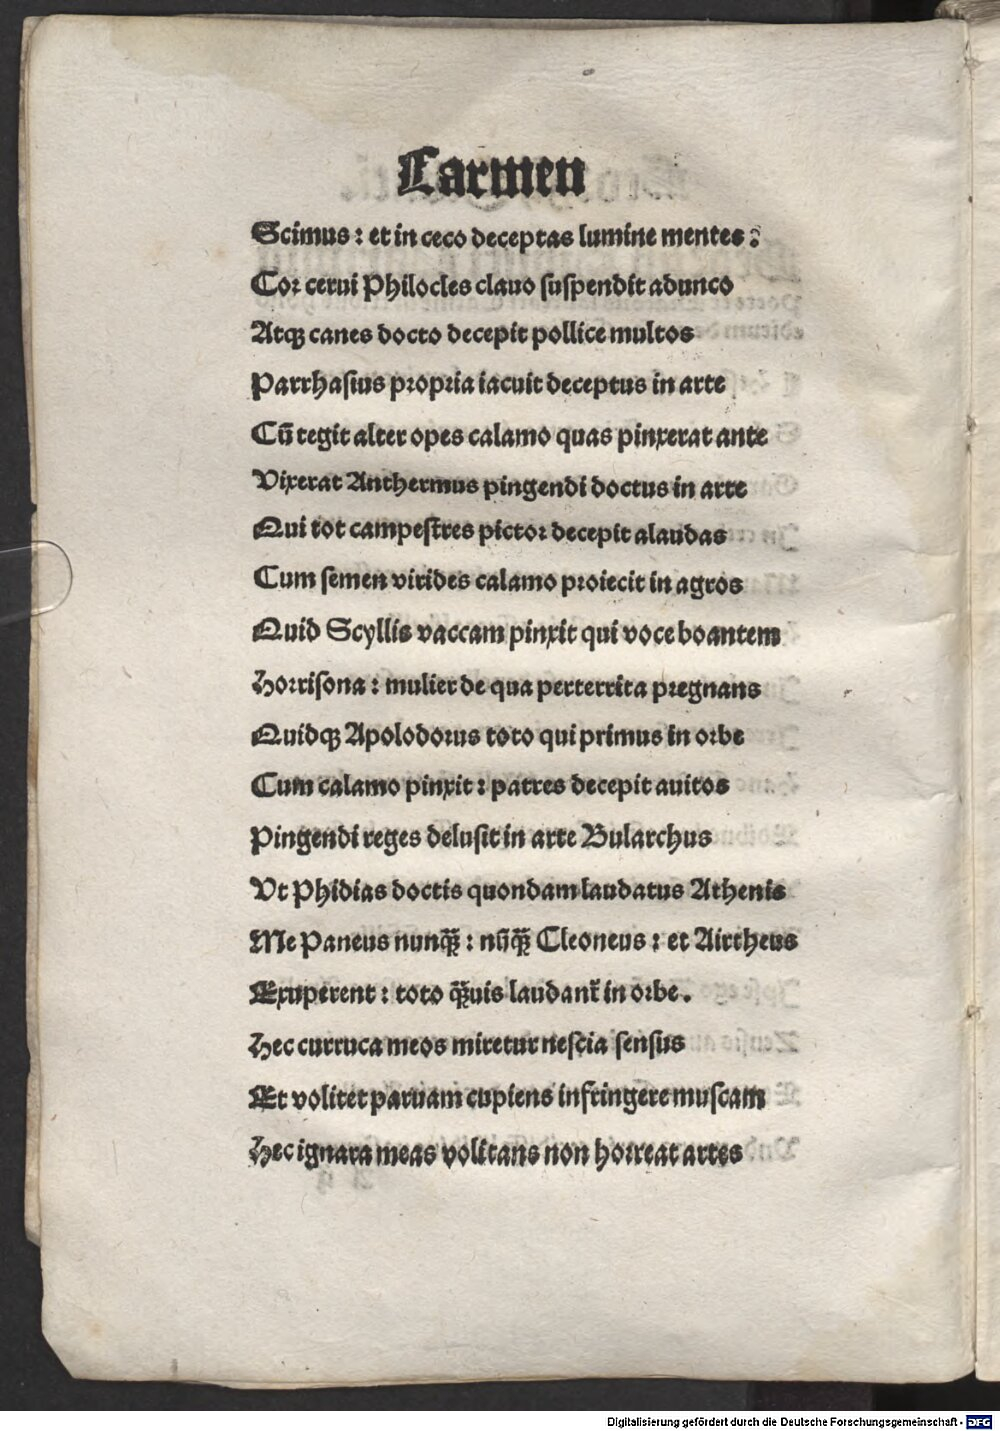 Carmen
Scimus: et in ceco deceptas lumine mentes:
Cor cerui Philocles clauo suspendit adunco
Atqꝫ canes docto decepit pollice multos
Parrhasius propria iacuit deceptus in arte
Cū tegit alter opes calamo quas pinxerat ante
Vixerat Anthermus pingendi doctus in arte
Qui tot campestres pictor decepit alaudas
Cum semen virides calamo proiecit in agros
Quid Scyllis vaccam pinxit qui voce boantem
Horrisona: mulier de qua perterrita pregnans
Quidqꝫ Apolodorus toto qui primus in orbe
Cum calamo pinxit: patres decepit auitos
Pingendi reges delusit in arte Bularchus
Vt Phidias doctis quondam laudatus Athenis
Me Paneus nunq̄ꝫ: nūq̄ꝫ Cleoneus: et Airtheus
Exuperent: toto q̄ꝫuis laudant᷑ in orbe.
Hec curruca meos miretur nescia sensus
Et volitet paruam cupiens infringere muscam
Hec ignara meas volitans non horreat artes
Digitalisierung gefördert durch die Deutsche Forschungsgemeinschaft - DFG